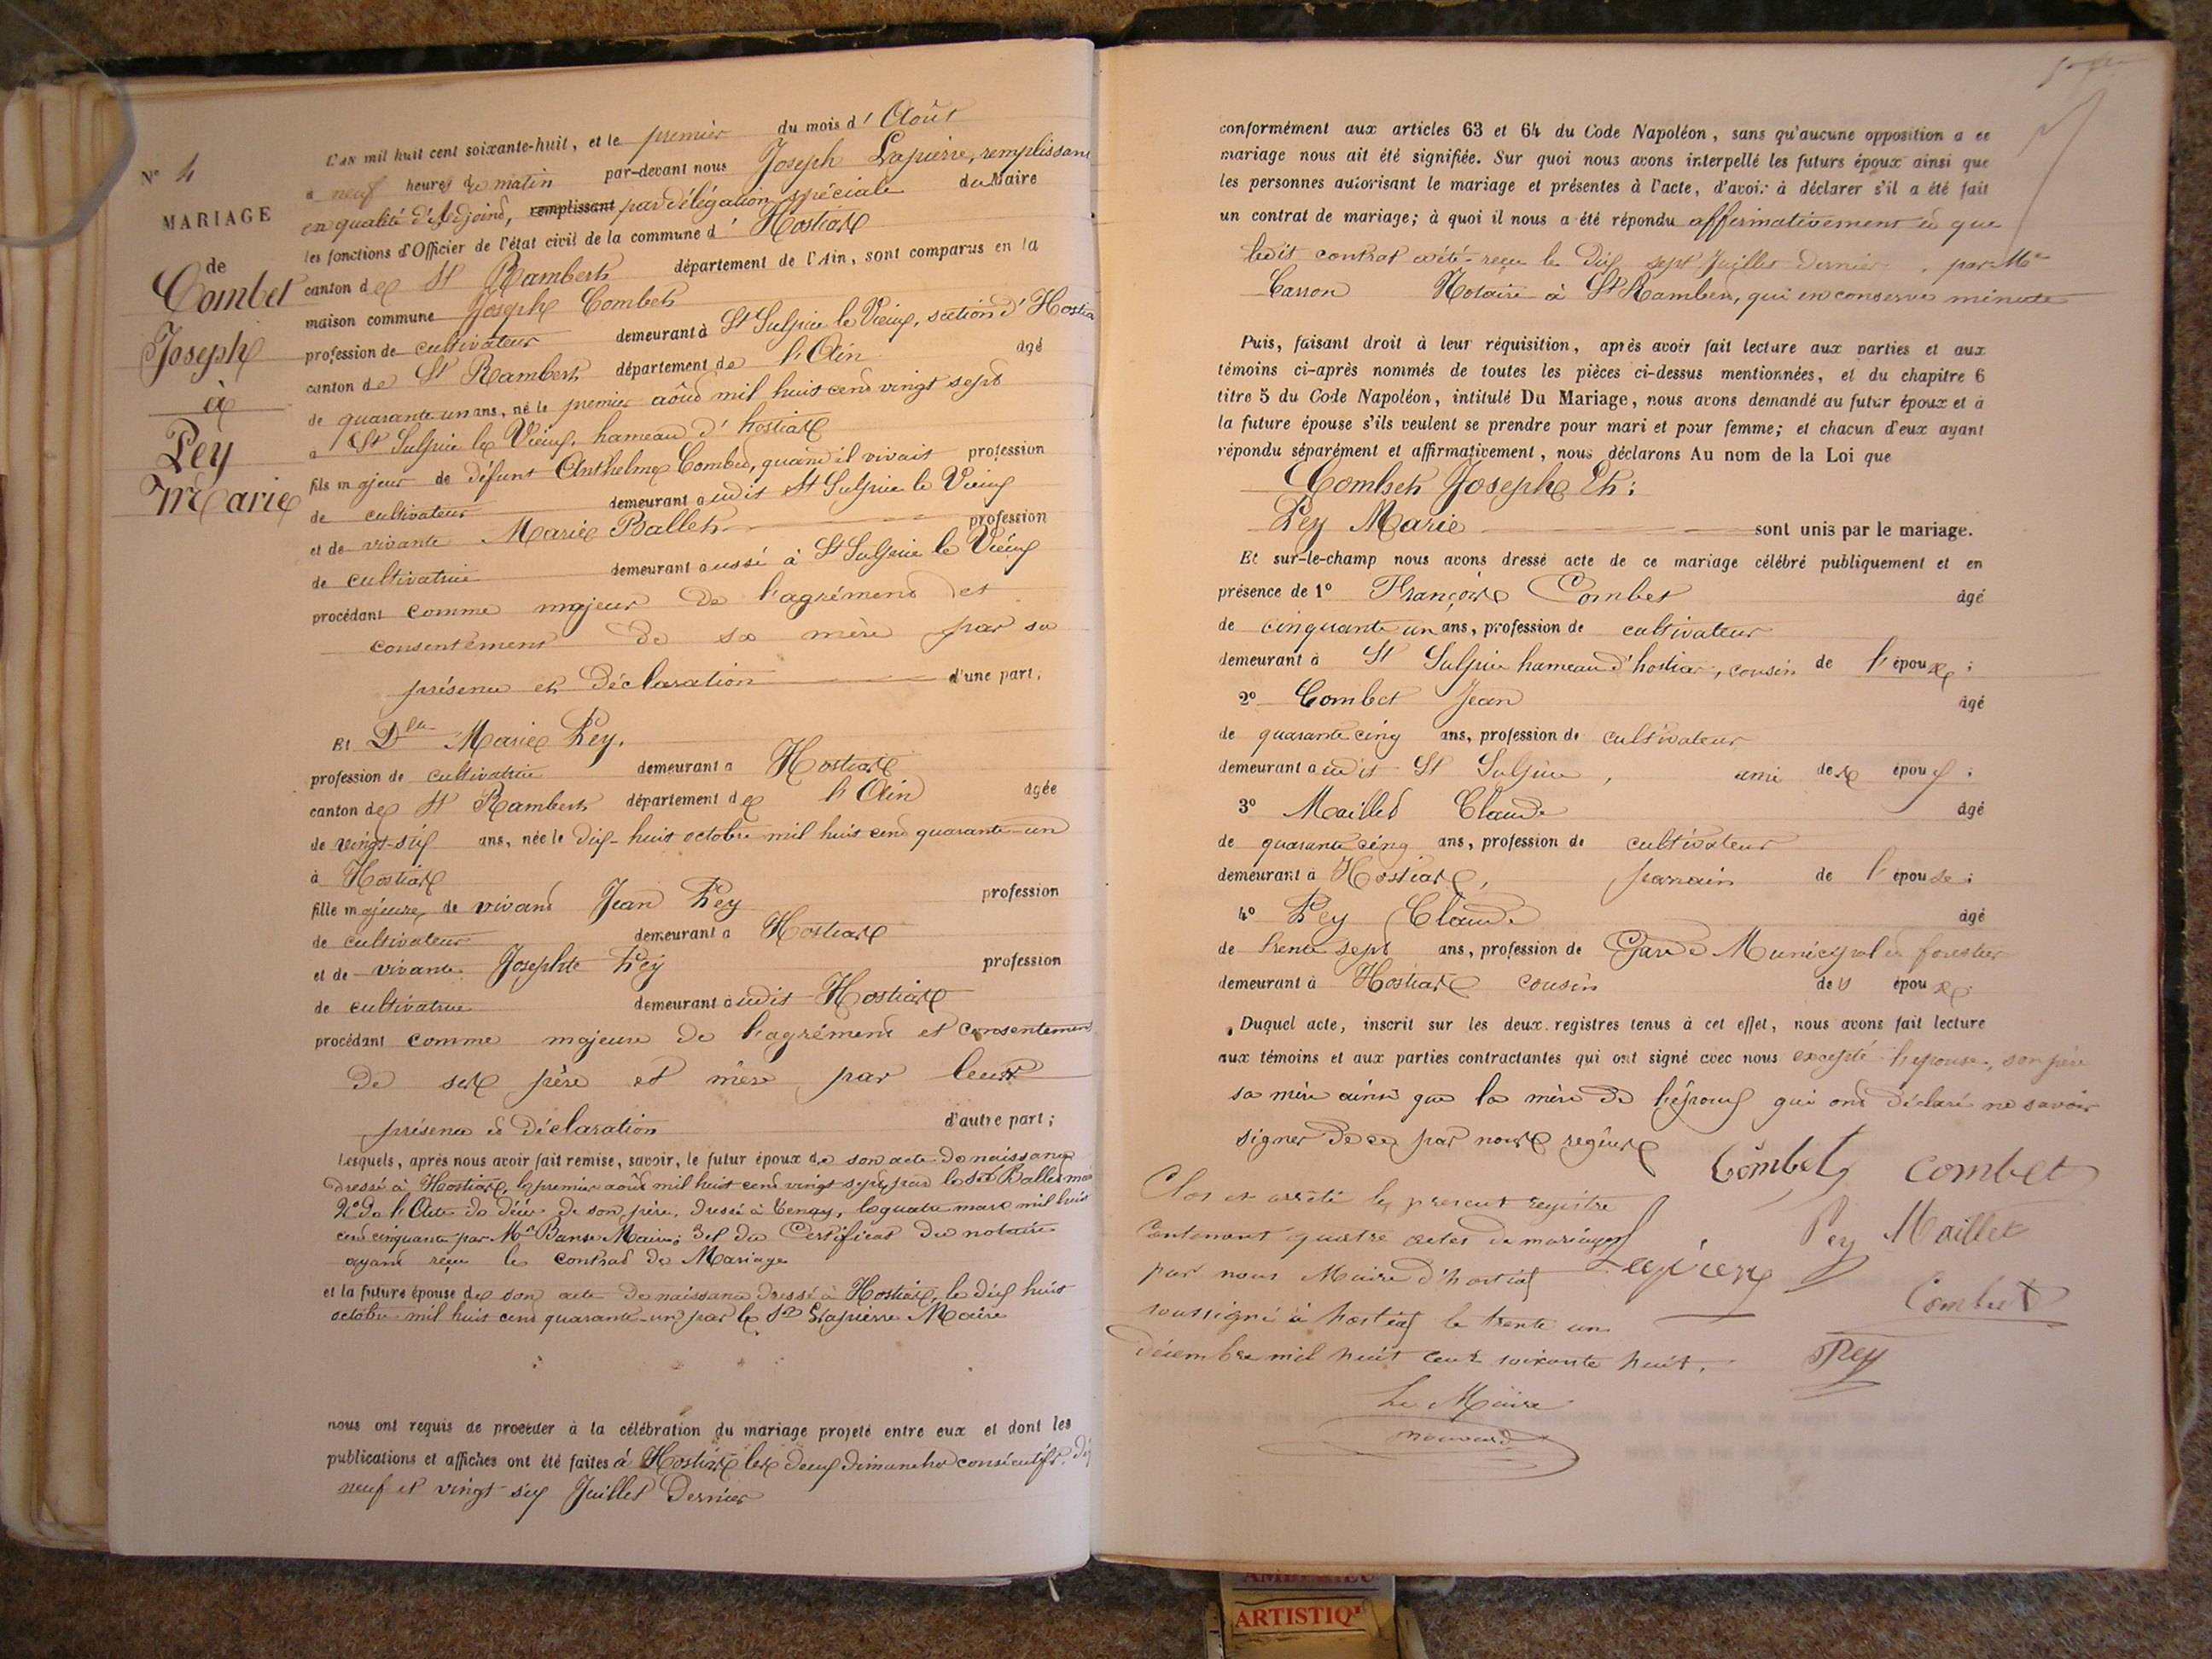 N° 4
MARIAGE
de
Combet
Joseph
à
Pey
Marie
L'AN mil huit cent soixante-huit, et le premier du mois d' Août
à neuf heures du matin par-devant nous Joseph Lapierre, remplissant
en qualité d'Adjoint, remplissant par délégation spéciale du Maire
les fonctions d'Officier de l'état civil de la commune d' Hostiaz
canton de St Rambert département de l'Ain, sont comparus en la
maison commune Joseph Combet
profession de cultivateur demeurant à St Sulpice le Vieux, section d'Hostia
canton de St Rambert département de l'Ain âgé
de quarante un ans, né le premier août mil huit cent vingt sept
à St Sulpice le Vieux, hameau d'hostiaz
fils majeur de défunt Anthelme Combet, quand il vivait profession
de cultivateur demeurant audit St Sulpice le Vieux
et de vivante Marie Ballet profession
de cultivatrice demeurant aussi à St Sulpice le Vieux
procédant comme majeur de l'agrément et
consentement de sa mère par sa
présence et déclaration d'une part;
Et Dlle Marie Pey.
profession de cultivatrice demeurant à Hostiaz
canton de St Rambert département de l'Ain âgée
de vingt-six ans, née le dix-huit octobre mil huit cent quarante-un
à Hostiaz
fille majeure de vivant Jean Pey profession
de cultivateur demeurant à Hostiaz
et de vivante Josephte Pey profession
de cultivatrice demeurant audit Hostiaz
procédant comme majeure de l'agrément et consentement
de ses père et mère par leur
présence et déclaration d'autre part;
Lesquels, après nous avoir fait remise, savoir, le futur époux de son acte de naissance
dressé à Hostiaz, le premier août mil huit cent vingt sept, par le sr Ballet maire
2° de l'Acte de décès de son père, dressé à Tenay, le quatre mars mil huit
cent cinquante par Mr Maire; 3° et du Certificat du notaire
ayant reçu le contrat de Mariage
et la future épouse de son acte de naissance dressé à Hostiaz, le dix huit
octobre mil huit cent quarante-un par le Sr Lapierre Maire
nous ont requis de procéder à la célébration du mariage projeté entre eux et dont les
publications et affiches ont été faites à Hostiaz les deux dimanches consécutifs, dix
neuf et vingt six Juillet dernier
conformément aux articles 63 et 64 du Code Napoléon, sans qu'aucune opposition a ce
mariage nous ait été signifiée. Sur quoi nous avons interpellé les futurs époux ainsi que
les personnes autorisant le mariage et présentes à l'acte, d'avoir à déclarer s'il a été fait
un contrat de mariage; à quoi il nous a été répondu affirmativement et que
ledit contrat a été reçu le dix sept Juillet dernier, par Me
Carron Notaire à St Rambert, qui en conserve minute
Puis, faisant droit à leur réquisition, après avoir fait lecture aux parties et aux
témoins ci-après nommés de toutes les pièces ci-dessus mentionnées, et du chapitre 6
titre 5 du Code Napoléon, intitulé Du Mariage, nous avons demandé au futur époux et à
la future épouse s'ils veulent se prendre pour mari et pour femme; et chacun d'eux ayant
répondu séparément et affirmativement, nous déclarons Au nom de la Loi que
Combet Joseph Et:
Pey Marie sont unis par le mariage.
Et sur-le-champ nous avons dressé acte de ce mariage célébré publiquement et en
présence de 1° François Combet âgé
de cinquante un ans, profession de cultivateur
demeurant à St Sulpice hameau d'hostiaz, cousin de l'époux;
2° Combet Jean âgé
de quarante cinq ans, profession de cultivateur
demeurant audit St Sulpice, ami des époux;
3° Maillet Claude âgé
de quarante cinq ans, profession de cultivateur
demeurant à Hostiaz, parrain de l'épouse;
4° Pey Claude âgé
de trente sept ans, profession de Garde Municipal et forestier
demeurant à Hostiaz cousin des époux.
Duquel acte, inscrit sur les deux registres tenus à cet effet, nous avons fait lecture
aux témoins et aux parties contractantes qui ont signé avec nous excepté l'épouse, son père
sa mère ainsi que la mère de l'époux qui ont déclaré ne savoir
signer de ce par nous requis
Combet combet
Pey Maillet
Lapierre
Combet
Pey
Clos et arrêté le présent registre
Contenant quatre actes de mariages
par nous Maire d'hostiaz
soussigné à hostiaz le trente un
décembre mil huit cent soixante huit.
Le Maire
ARTISTIQ